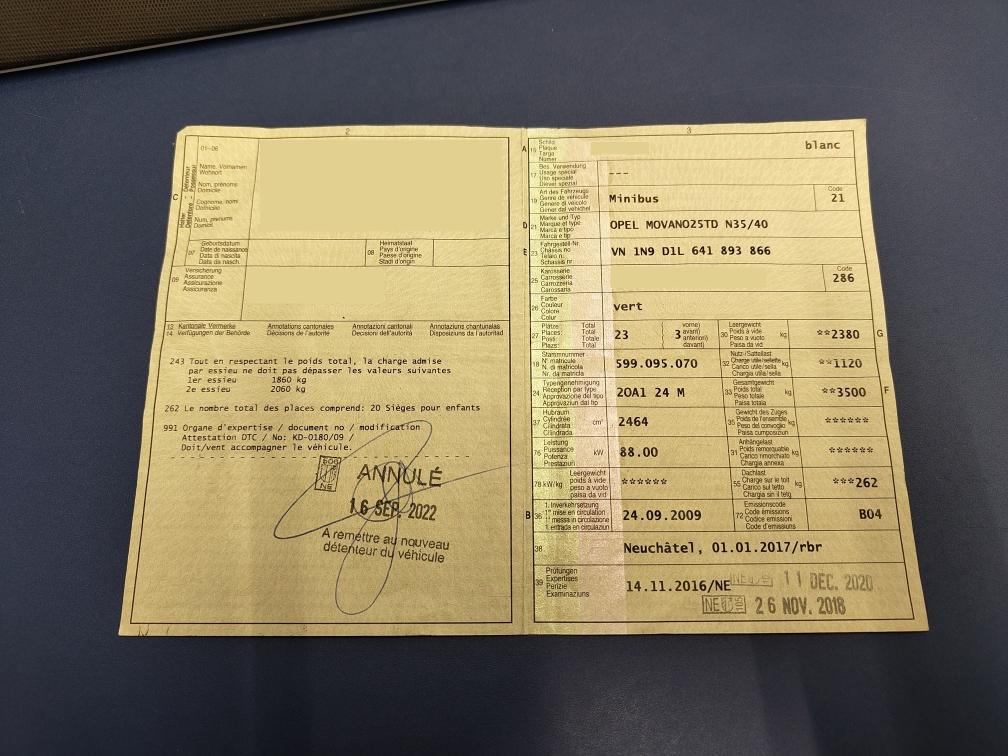 2
01-06
C
Name, Vornamen
Wohnort
Nom, prénoms
Domicile
Cognome, nomi
Domicilio
Num, prenums
Domicil
07
Geburtsdatum
Date de naissance
Data di nascita
Data da nasch.
08
Heimatstaat
Pays d'origine
Paese d'origine
Stadi d'origin
09
Versicherung
Assurance
Assicurazione
Assicuranza
13 Kantonale Vermerke Annotations cantonales Annotazioni cantonali Annotaziuns chantunalas
14 Verfügungen der Behörde Décisions de l'autorité Decisioni dell'autorità Disposiziuns da l'autoritad
243 Tout en respectant le poids total, la charge admise
par essieu ne doit pas dépasser les valeurs suivantes
1er essieu 1860 kg
2e essieu 2060 kg
262 Le nombre total des places comprend: 20 Sièges pour enfants
991 Organe d'expertise / document no / modification
Attestation DTC / No: KD-0180/09 /
Doit/vent accompagner le véhicule.
NE
ANNULÉ
16 SEP. 2022
A remettre au nouveau
détenteur du véhicule
3
A 15 Schild
Plaque
Targa
Numer
blanc
17 Bes. Verwendung
Usage spécial
Uso speciale
Diever spezial
---
19 Art des Fahrzeugs
Genre de véhicule
Genere di veicolo
Gener dal vehichel
Minibus
Code
21
D 21 Marke und Typ
Marque et type
Marca e tipo
Marca e tip
OPEL MOVANO25TD N35/40
E 23 Fahrgestell-Nr.
Châssis no
Telaio n.
Schassis nr.
VN 1N9 D1L 641 893 866
25 Karosserie
Carrosserie
Carrozzeria
Carossaria
Code
286
26 Farbe
Couleur
Colore
Colur
vert
27 Plätze: Total
Places: Total
Posti: Totale
Plazs: Total
23
3
vorne)
avant)
anteriori)
davant)
30 Leergewicht
Poids à vide
Peso a vuoto
Paisa da vid
kg
**2380
G
18 Stammnummer
N° matricule
N. di matricola
Nr. da matricla
599.095.070
32 Nutz-/Sattellast
Charge utile/sellette
Carico utile/sella
Chargia utila/sella
kg
**1120
24 Typengenehmigung
Réception par type
Approvazione del tipo
Approvaziun dal tip
2OA1 24 M
33 Gesamtgewicht
Poids total
Peso totale
Paisa totala
kg
**3500
F
37 Hubraum
Cylindrée
Cilindrata
Cilindrada
cm³
2464
35 Gewicht des Zuges
Poids de l'ensemble
Peso del convoglio
Paisa cumposiziun
kg
******
76 Leistung
Puissance
Potenza
Prestaziun
kW
88.00
31 Anhängelast
Poids remorquable
Carico rimorchiato
Chargia annexa
kg
******
78 kW/kg
Leergewicht
poids à vide
peso a vuoto
paisa da vid
******
55 Dachlast
Charge sur le toit
Carico sul tetto
Chargia sin il tetg
kg
***262
B 36 1. Inverkehrsetzung
1re mise en circulation
1a messa in circolazione
1. entrada en circulaziun
24.09.2009
72 Emissionscode
Code émissions
Codice emissioni
Code d'emissiuns
B04
38
Neuchâtel, 01.01.2017/rbr
39 Prüfungen
Expertises
Perizie
Examinaziuns
14.11.2016/NE
11 DEC. 2020
NE
26 NOV. 2018